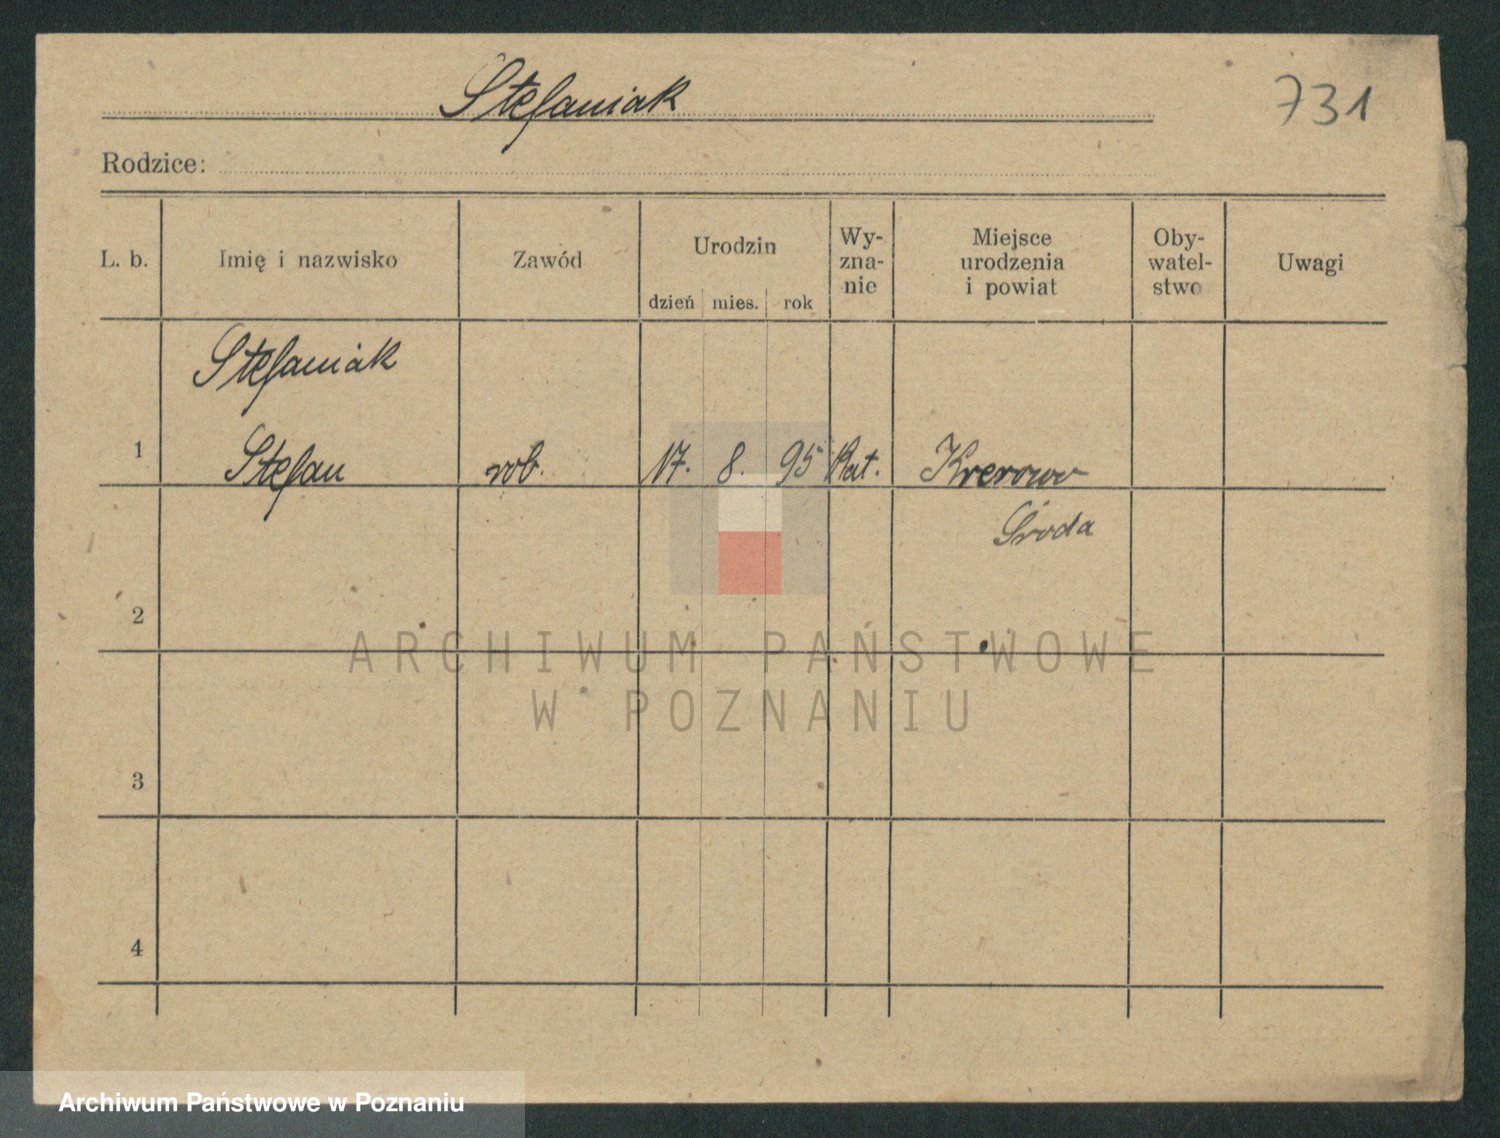 Stefaniak
731
Rodzice:
L. b.
Imię i nazwisko
Zawód
Urodzin
dzień mies. rok
Wy-
zna-
nie
Miejsce
urodzenia
i powiat
Oby-
watel-
stwo
Uwagi
Stefaniak
1 Stefan rob. 17. 8. 95 Kat. Krerowo
Środa
2
3
4
ARCHIWUM PAŃSTWOWE
W POZNANIU
Archiwum Państwowe w Poznaniu